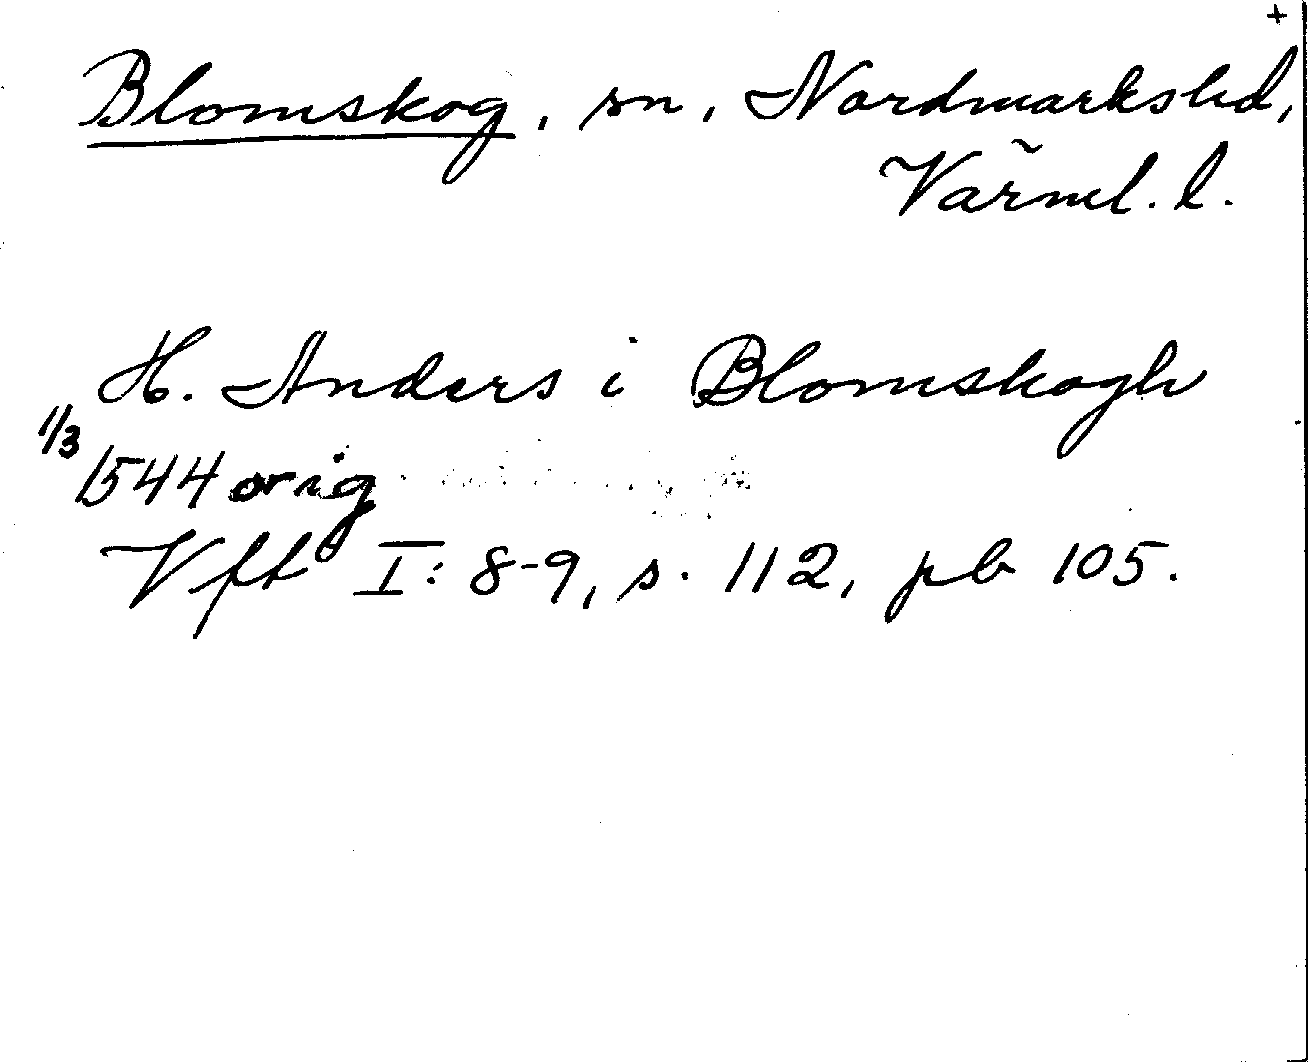 +
Blomskog, sn, Nordmarks hd,
Värml. l.
H. Anders i Blomskogh
1/3
1544 orig
Vft I: 8-9, s. 112, pb 105.